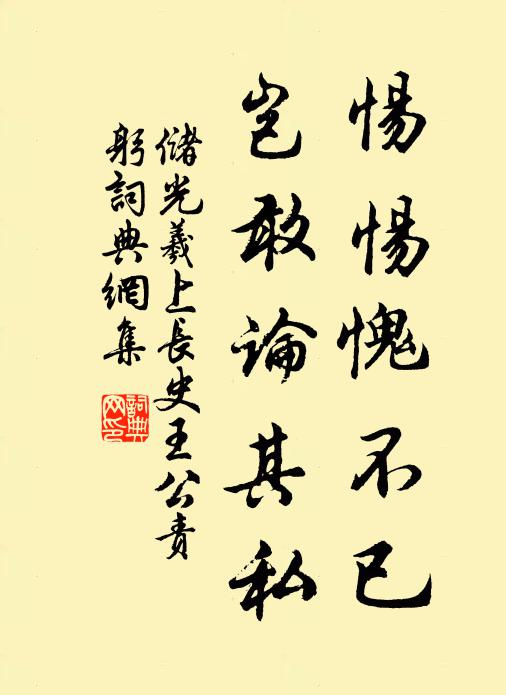 惕惕愧不已
豈敢論其私
儲光羲上長史王公責
躬詞典網集
詞典
网印